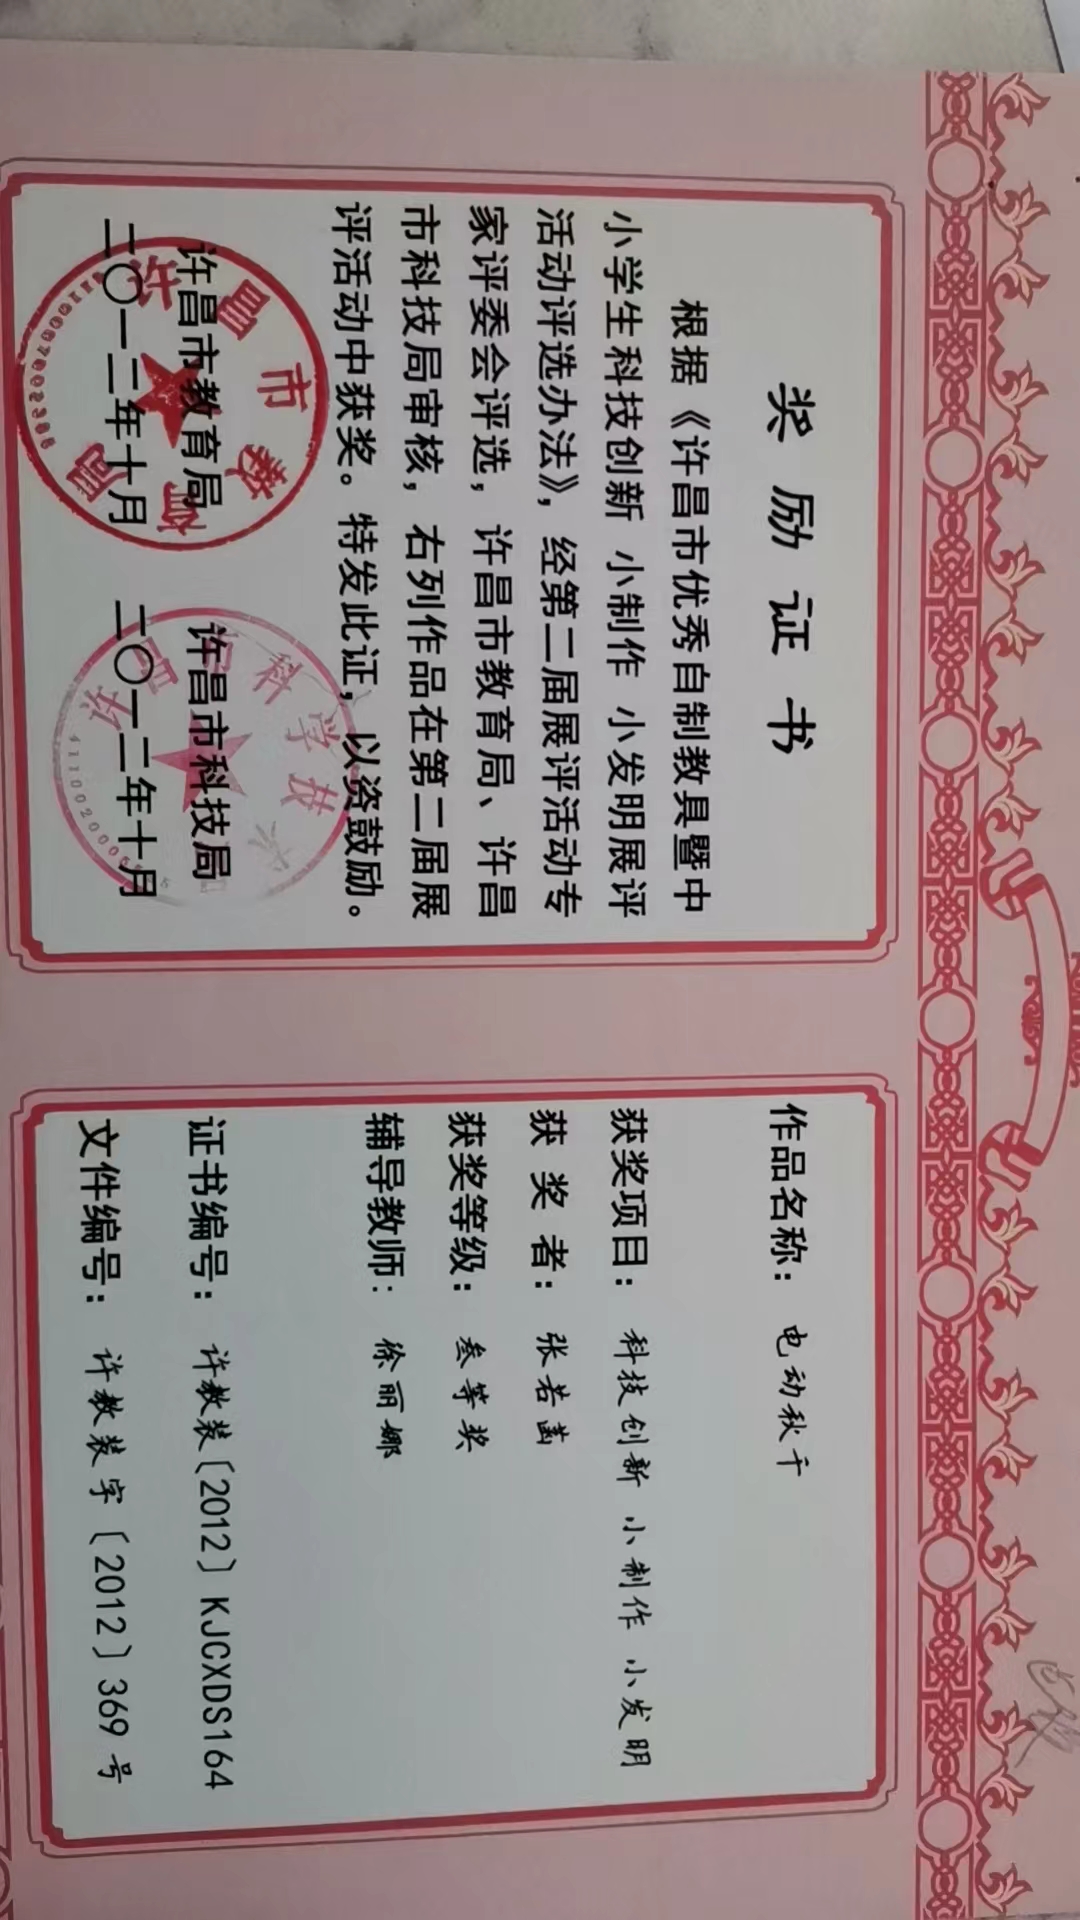 奖励证书
根据《许昌市优秀自制教具暨中
小学生科技创新 小制作 小发明展评
活动评选办法》，经第二届展评活动专
家评委会评选，许昌市教育局、许昌
市科技局审核，右列作品在第二届展
评活动中获奖。特发此证，以资鼓励。
许昌市教育局 许昌市科技局
二〇一二年十月 二〇一二年十月
许昌市教育局
作品名称：电动秋千
获奖项目：科技创新 小制作 小发明
获奖者：张若菡
获奖等级：叁等奖
辅导教师：徐丽娜
证书编号：许教装〔2012〕KJCXDS164
文件编号：许教装字〔2012〕369号